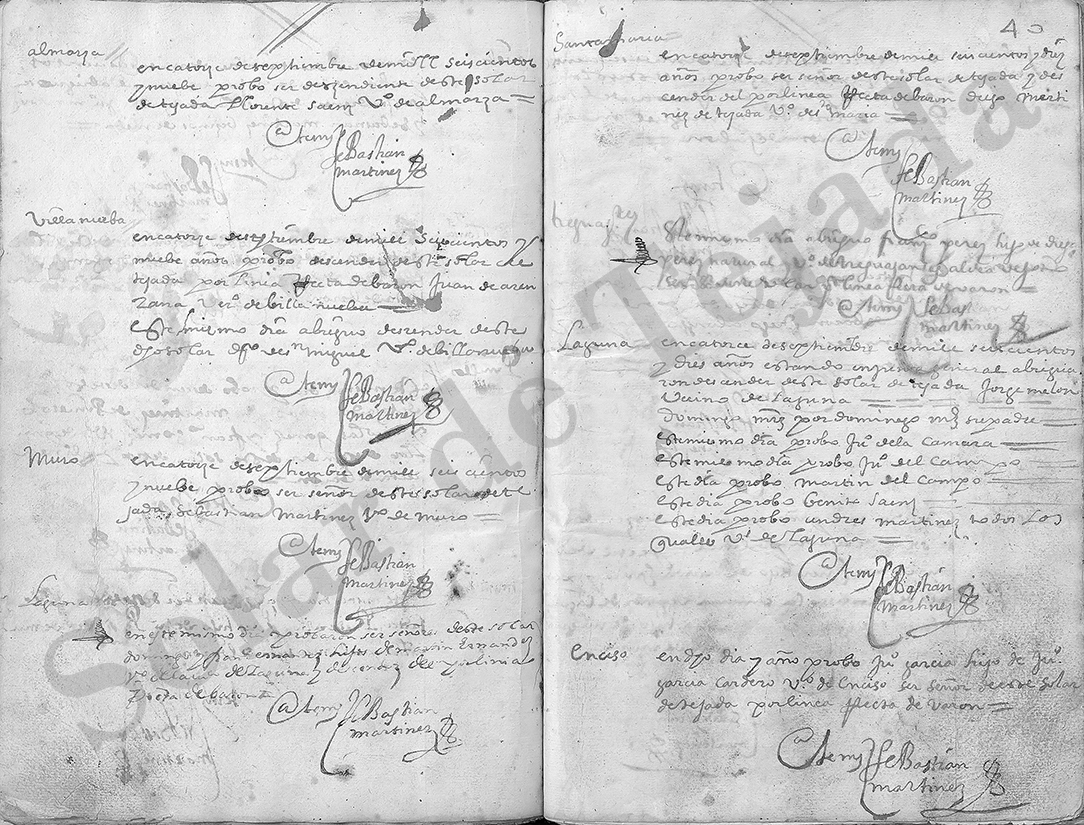 almarza
en catorze de septiembre de mill seiscientos
y nuebe probo ser deszendiente deste solar
de tejada llorente saenz vº de almarza
Ante my
seBastian
martinez
Villanueba
en catorze de setiembre de mill seiscientos y
nuebe años probo descender deste solar de
tejada por linia Recta de baron Juan de aren
zana vezº de billa nueba
este mismo dia abriguo deszender deste
dho solar miguel vº de billanueba
Ante my
seBastian
martinez
Muro
en catorze de septiembre de mill seis cientos
y nuebe probo ser señor deste solar de te
jada sebastian martinez vº de muro
Ante my
seBastian
martinez
Laguna
en este mismo dia probaron ser señores deste solar
domingo y Juan hernandez hijos de martin ernandez
de Laguna por linia
Recta de baron
Ante my
seBastian
martinez
40
Santa maria
en catorze de septiembre de mill seiscientos y diez
años probo ser señor deste solar de tejada y des
cender del por linea Recta de baron diego marti
nez de tejada vº de sta maria
Ante my
seBastian
martinez
treguajantes
Este mismo dia abriguo franco perez hijo de diego
perez natural y vº de treguajantes
linea Recta de varon
Ante my
seBastian
martinez
Laguna
en catorce de septiembre de mill seiscientos
y diez años estando en junta general abrigua
ron descender deste solar de tejada Jorge melon
vecino de laguna
domingo mrz por domingo mrz su padre
este mismo dia probo Juº de la Camara
este mismo dia probo Juº del Campo
este dia probo martin del Campo
este dia probo benito saenz
este dia probo andres martinez todos los
quales vºs de laguna
Ante my
seBastian
martinez
Enciso
en dho dia y año probo Juº garcia hijo de Juº
garcia Cordero vº de Enciso ser señor deste solar
de tejada por linea Recta de varon
Ante my
seBastian
martinez
Solar de Tejada